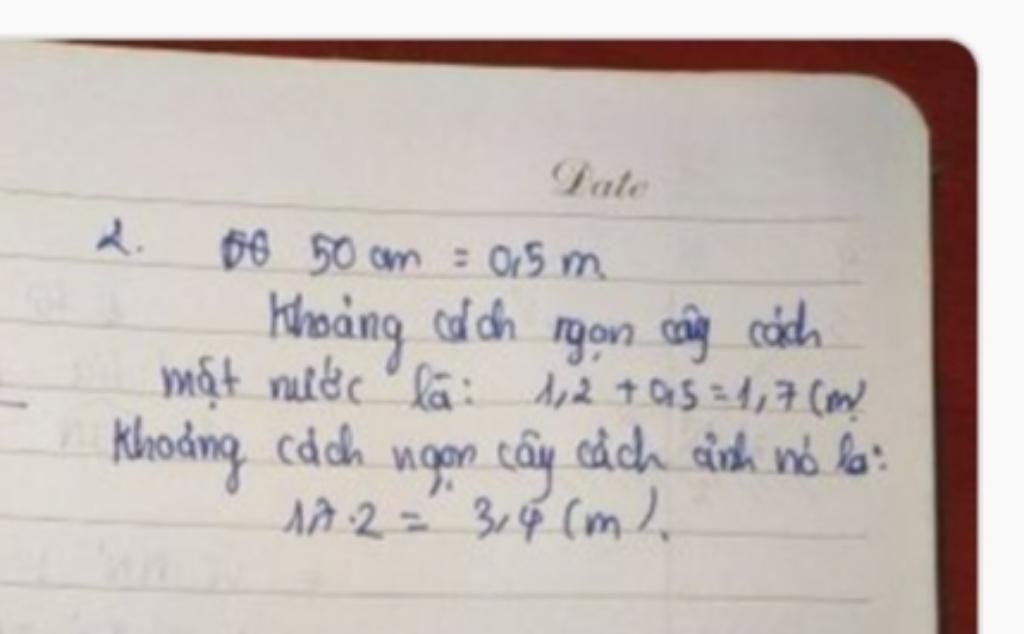 Date
2. 50 cm = 0,5 m.
Khoảng cách ngọn cây cách
mặt nước là: 1,2 + 0,5 = 1,7 (m)
Khoảng cách ngọn cây cách ảnh nó là:
1,7.2 = 3,4 (m).